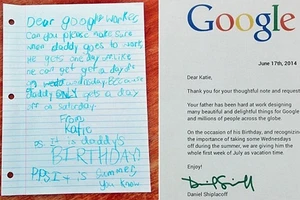 Dear google worker,
Can you please make sure
when daddy goes to work,
he gets one day off. Like
he can get a day off
on wednesday. Because
daddy ONLY gets a day
off on Saturday.
From,
Katie
P.S. It is daddy's
BIRTHDAY!
P.P.S. It is summer,
you know
Google
June 17th, 2014
Dear Katie,
Thank you for your thoughtful note and request.
Your father has been hard at work designing
many beautiful and delightful things for Google
and millions of people across the globe.
On the occasion of his Birthday, and recognizing
the importance of taking some Wednesdays
off during the summer, we are giving him the
whole first week of July as vacation time.
Enjoy!
Daniel Shiplacoff